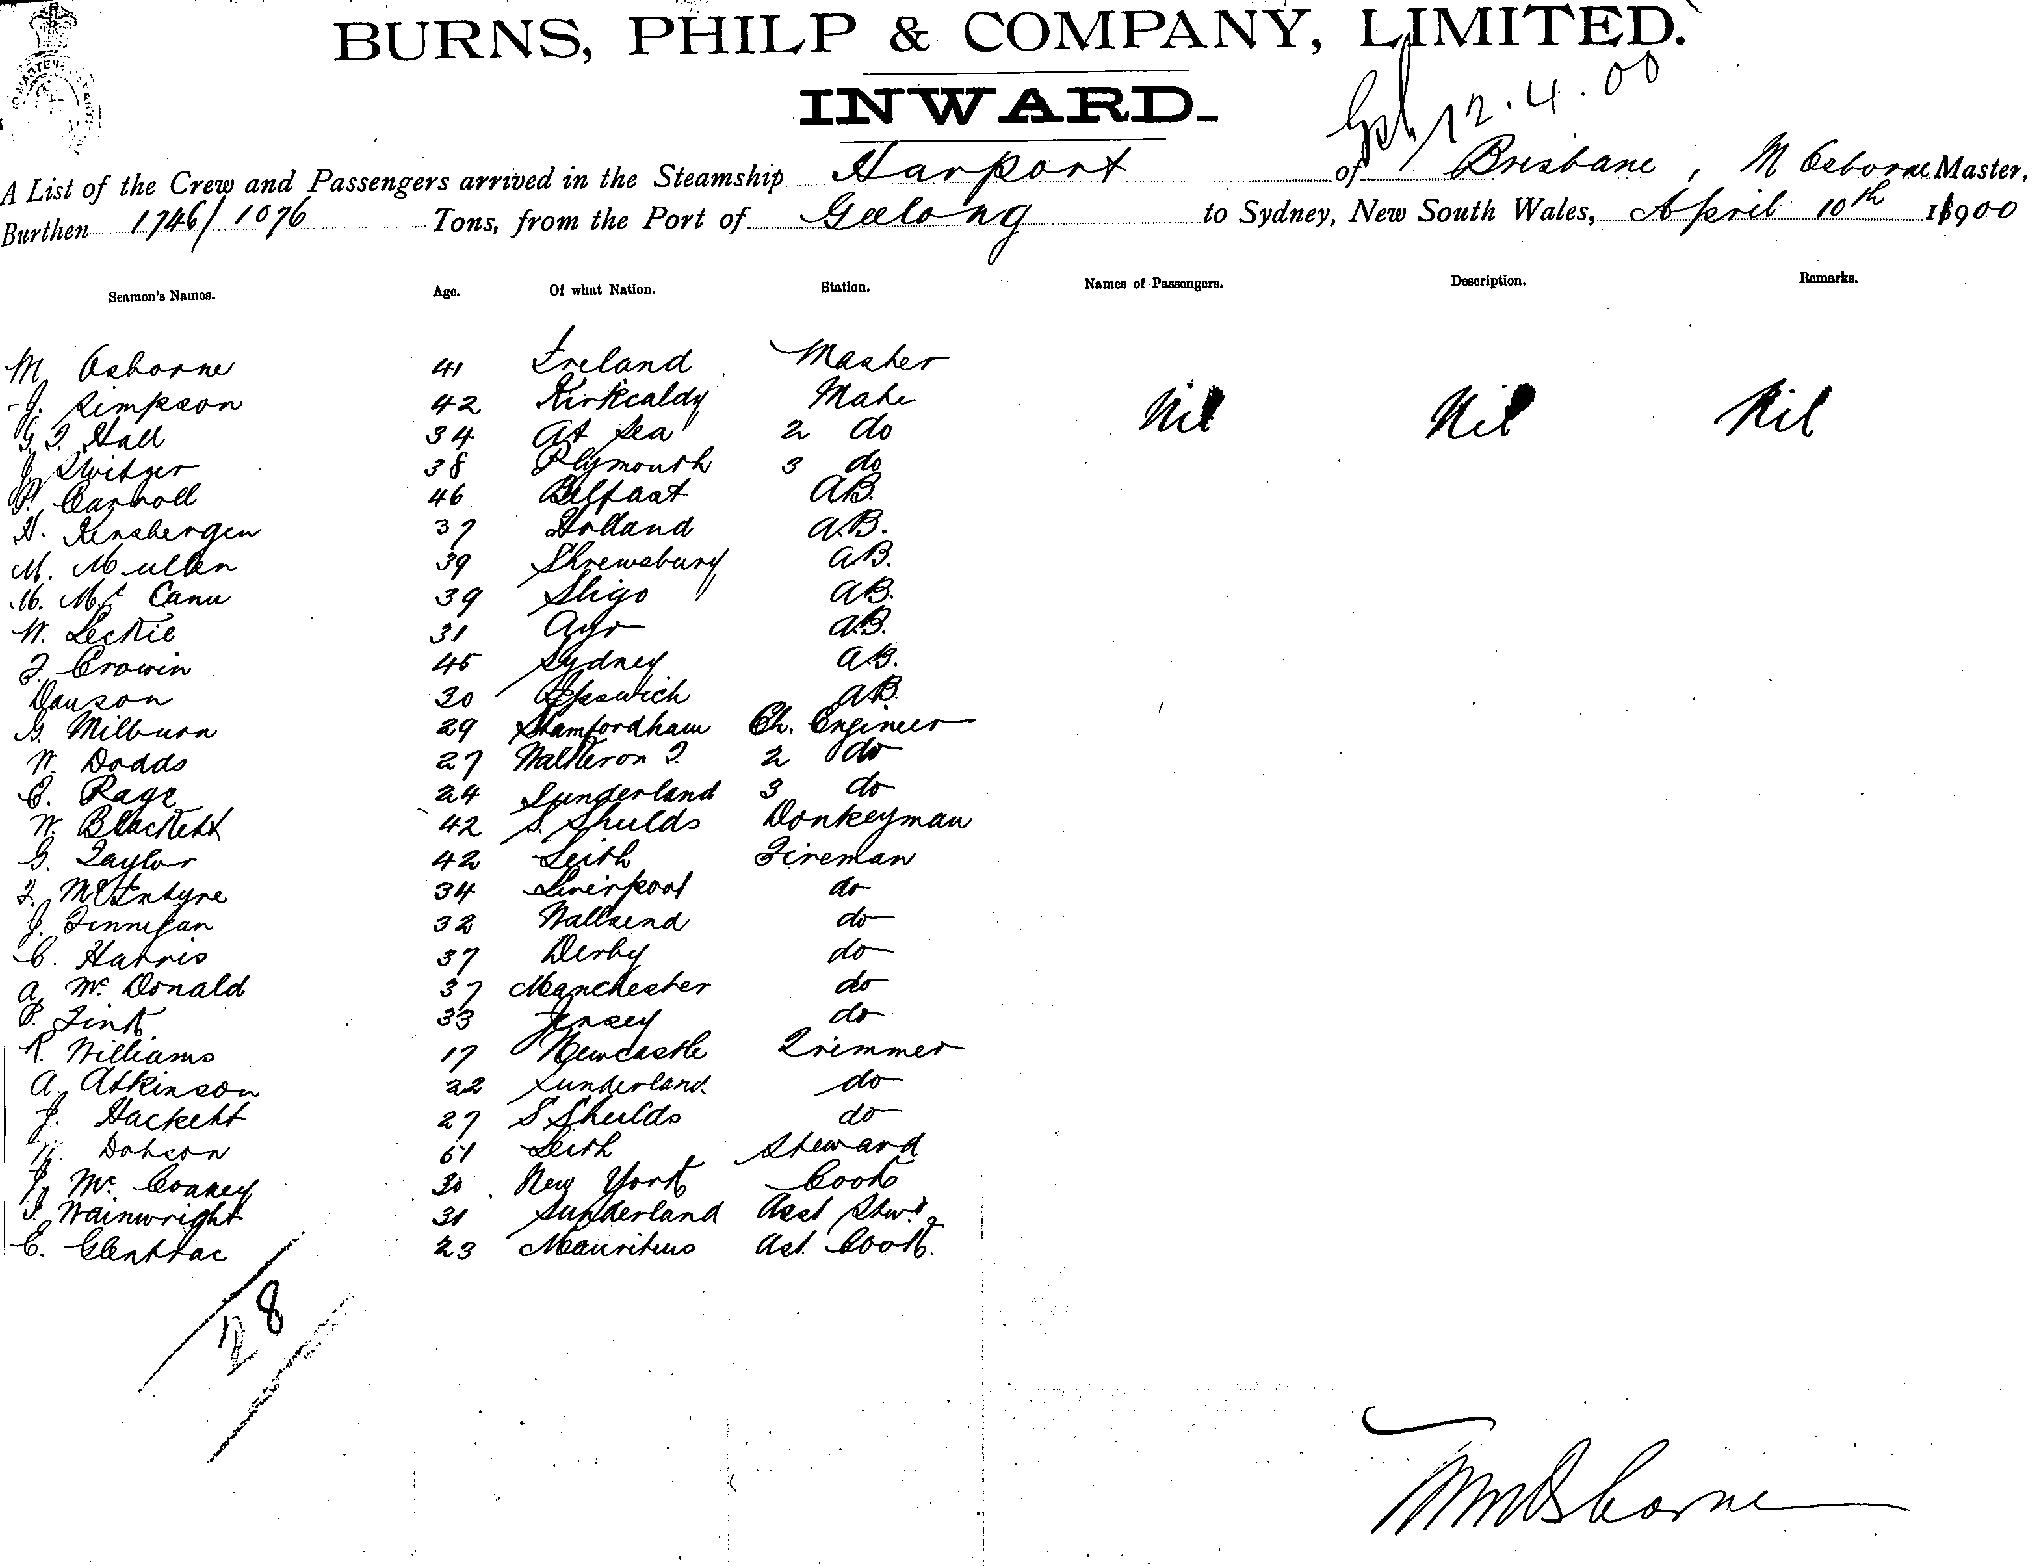 BURNS, PHILP & COMPANY, LIMITED.
INWARD.
12.4.00
A List of the Crew and Passengers arrived in the Steamship Harport of Brisbane, M Osborne Master,
Burthen 1746/1076 Tons, from the Port of Geelong to Sydney, New South Wales, April 10th 1900
Seamen's Names. Age. Of what Nation. Station. Names of Passengers. Description. Remarks.
M Osborne 41 Ireland Master
J. Simpson 42 Kirkcaldy Mate Nil Nil Nil
G. T. Hall 34 At Sea 2 do
J. Switzer 38 Plymouth 3 do
P. Carroll 46 Belfast AB.
H. Kensbergen 37 Holland A.B.
M. Mullen 39 Shrewsbury AB.
M. Mc Cann 39 Sligo AB.
W. Leckie 31 Ayr A.B.
T. Crowin 45 Sydney AB.
Dawson 30 Ipswich AB.
G. Milburn 29 Stamfordham Ch. Engineer
W. Dodds 27 2 do
C. Page 24 Sunderland 3 do
W. Blackett 42 S. Shulds Donkeyman
G. Taylor 42 Leith Fireman
T. McIntyre 34 Liverpool do
J. Finnigan 32 Wallsend do
C. Harris 37 Derby do
A. Mc Donald 37 Manchester do
P. Fink 33 Jersey do
R. Williams 17 Newcastle Trimmer
A. Atkinson 22 Sunderland do
J. Hackett 27 S Shulds do
Dobson 61 Leith Steward
J. Mc 30 New York Cook
T. Wainwright 31 Sunderland Asst Stwd
C. 23 Mauritius Ast. Cook.
28
M Osborne